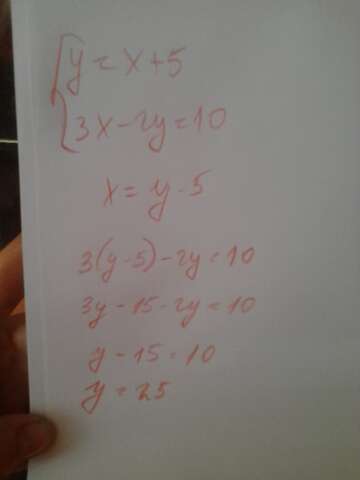 y = x + 5
3x - 2y = 10
x = y - 5
3(y - 5) - 2y = 10
3y - 15 - 2y = 10
y - 15 = 10
y = 25